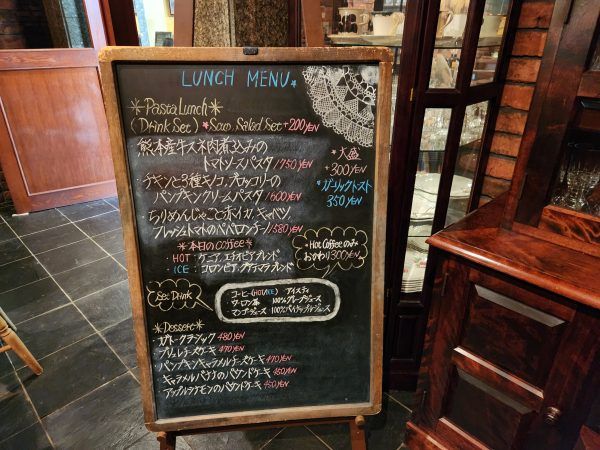 LUNCH MENU
Pasta Lunch
(Drink Set) * Soup, Salad Set +200YEN
熊本産牛スネ肉煮込みの
トマトソースパスタ 1750YEN
チキンと3種キノコ、ブロッコリーの
パンプキンクリームパスタ 1600YEN
ちりめんじゃこと赤イカ、キャベツ、
フレッシュトマトのペペロンチーノ 1580YEN
* 大盛
+300YEN
* ガーリックトースト
350YEN
* 本日の coffee *
・HOT: ケニア、エチオピアブレンド
・ICE: コロンビア・グアテマラブレンド
Hot Coffeeのみ
おかわり300YEN
Set Drink
コーヒー(HOT/ICE) アイスティ
ウーロン茶 100%グレープジュース
マンゴージュース 100%パイナップルジュース
* Dessert *
ガトークラシック 480YEN
ブリュレチーズケーキ 470YEN
パンプキンキャラメルチーズケーキ 470YEN
キャラメルバナナのパウンドケーキ 450YEN
アップルシナモンのパウンドケーキ 450YEN